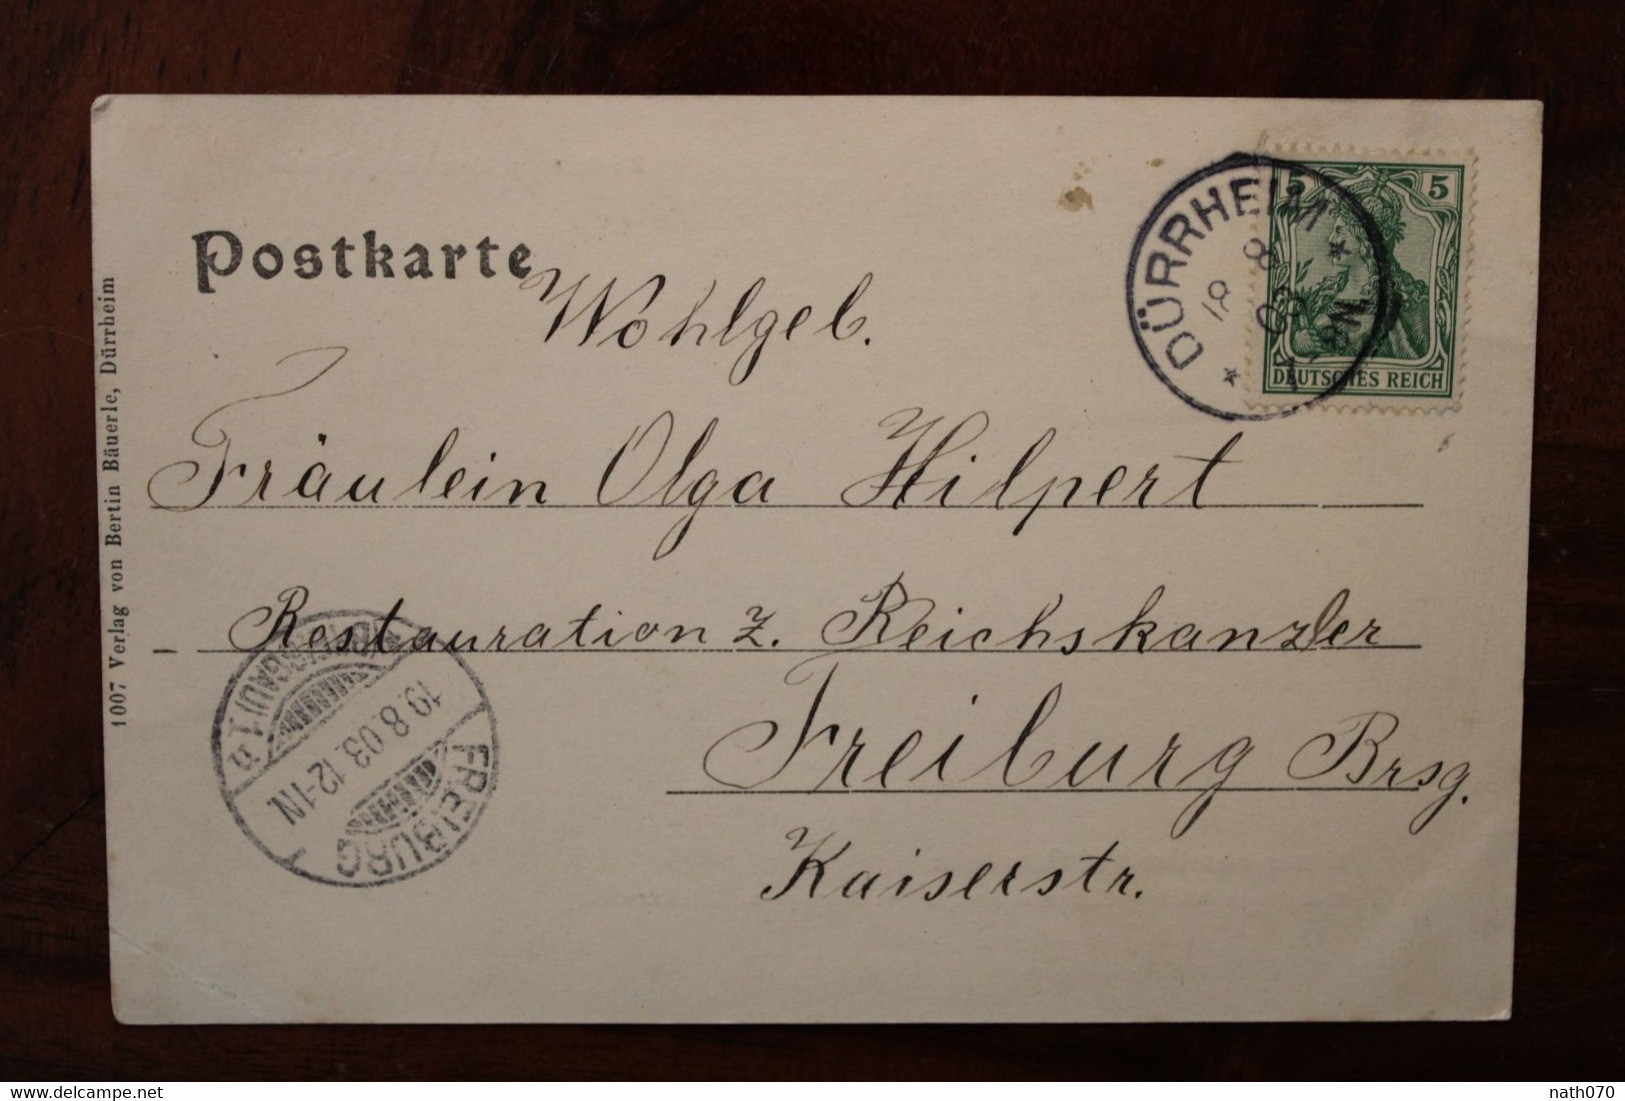 Postkarte
Wohlgeb.
Fräulein Olga Hilpert
Restauration z. Reichskanzler
Freiburg Brsg.
Kaiserstr.
1007 Verlag von Bertin Bäuerle, Dürrheim
DÜRRHEIM
18 8 03
5 5
DEUTSCHES REICH
FREIBURG
19.8.03.12-1N
delcampe.net
nath070